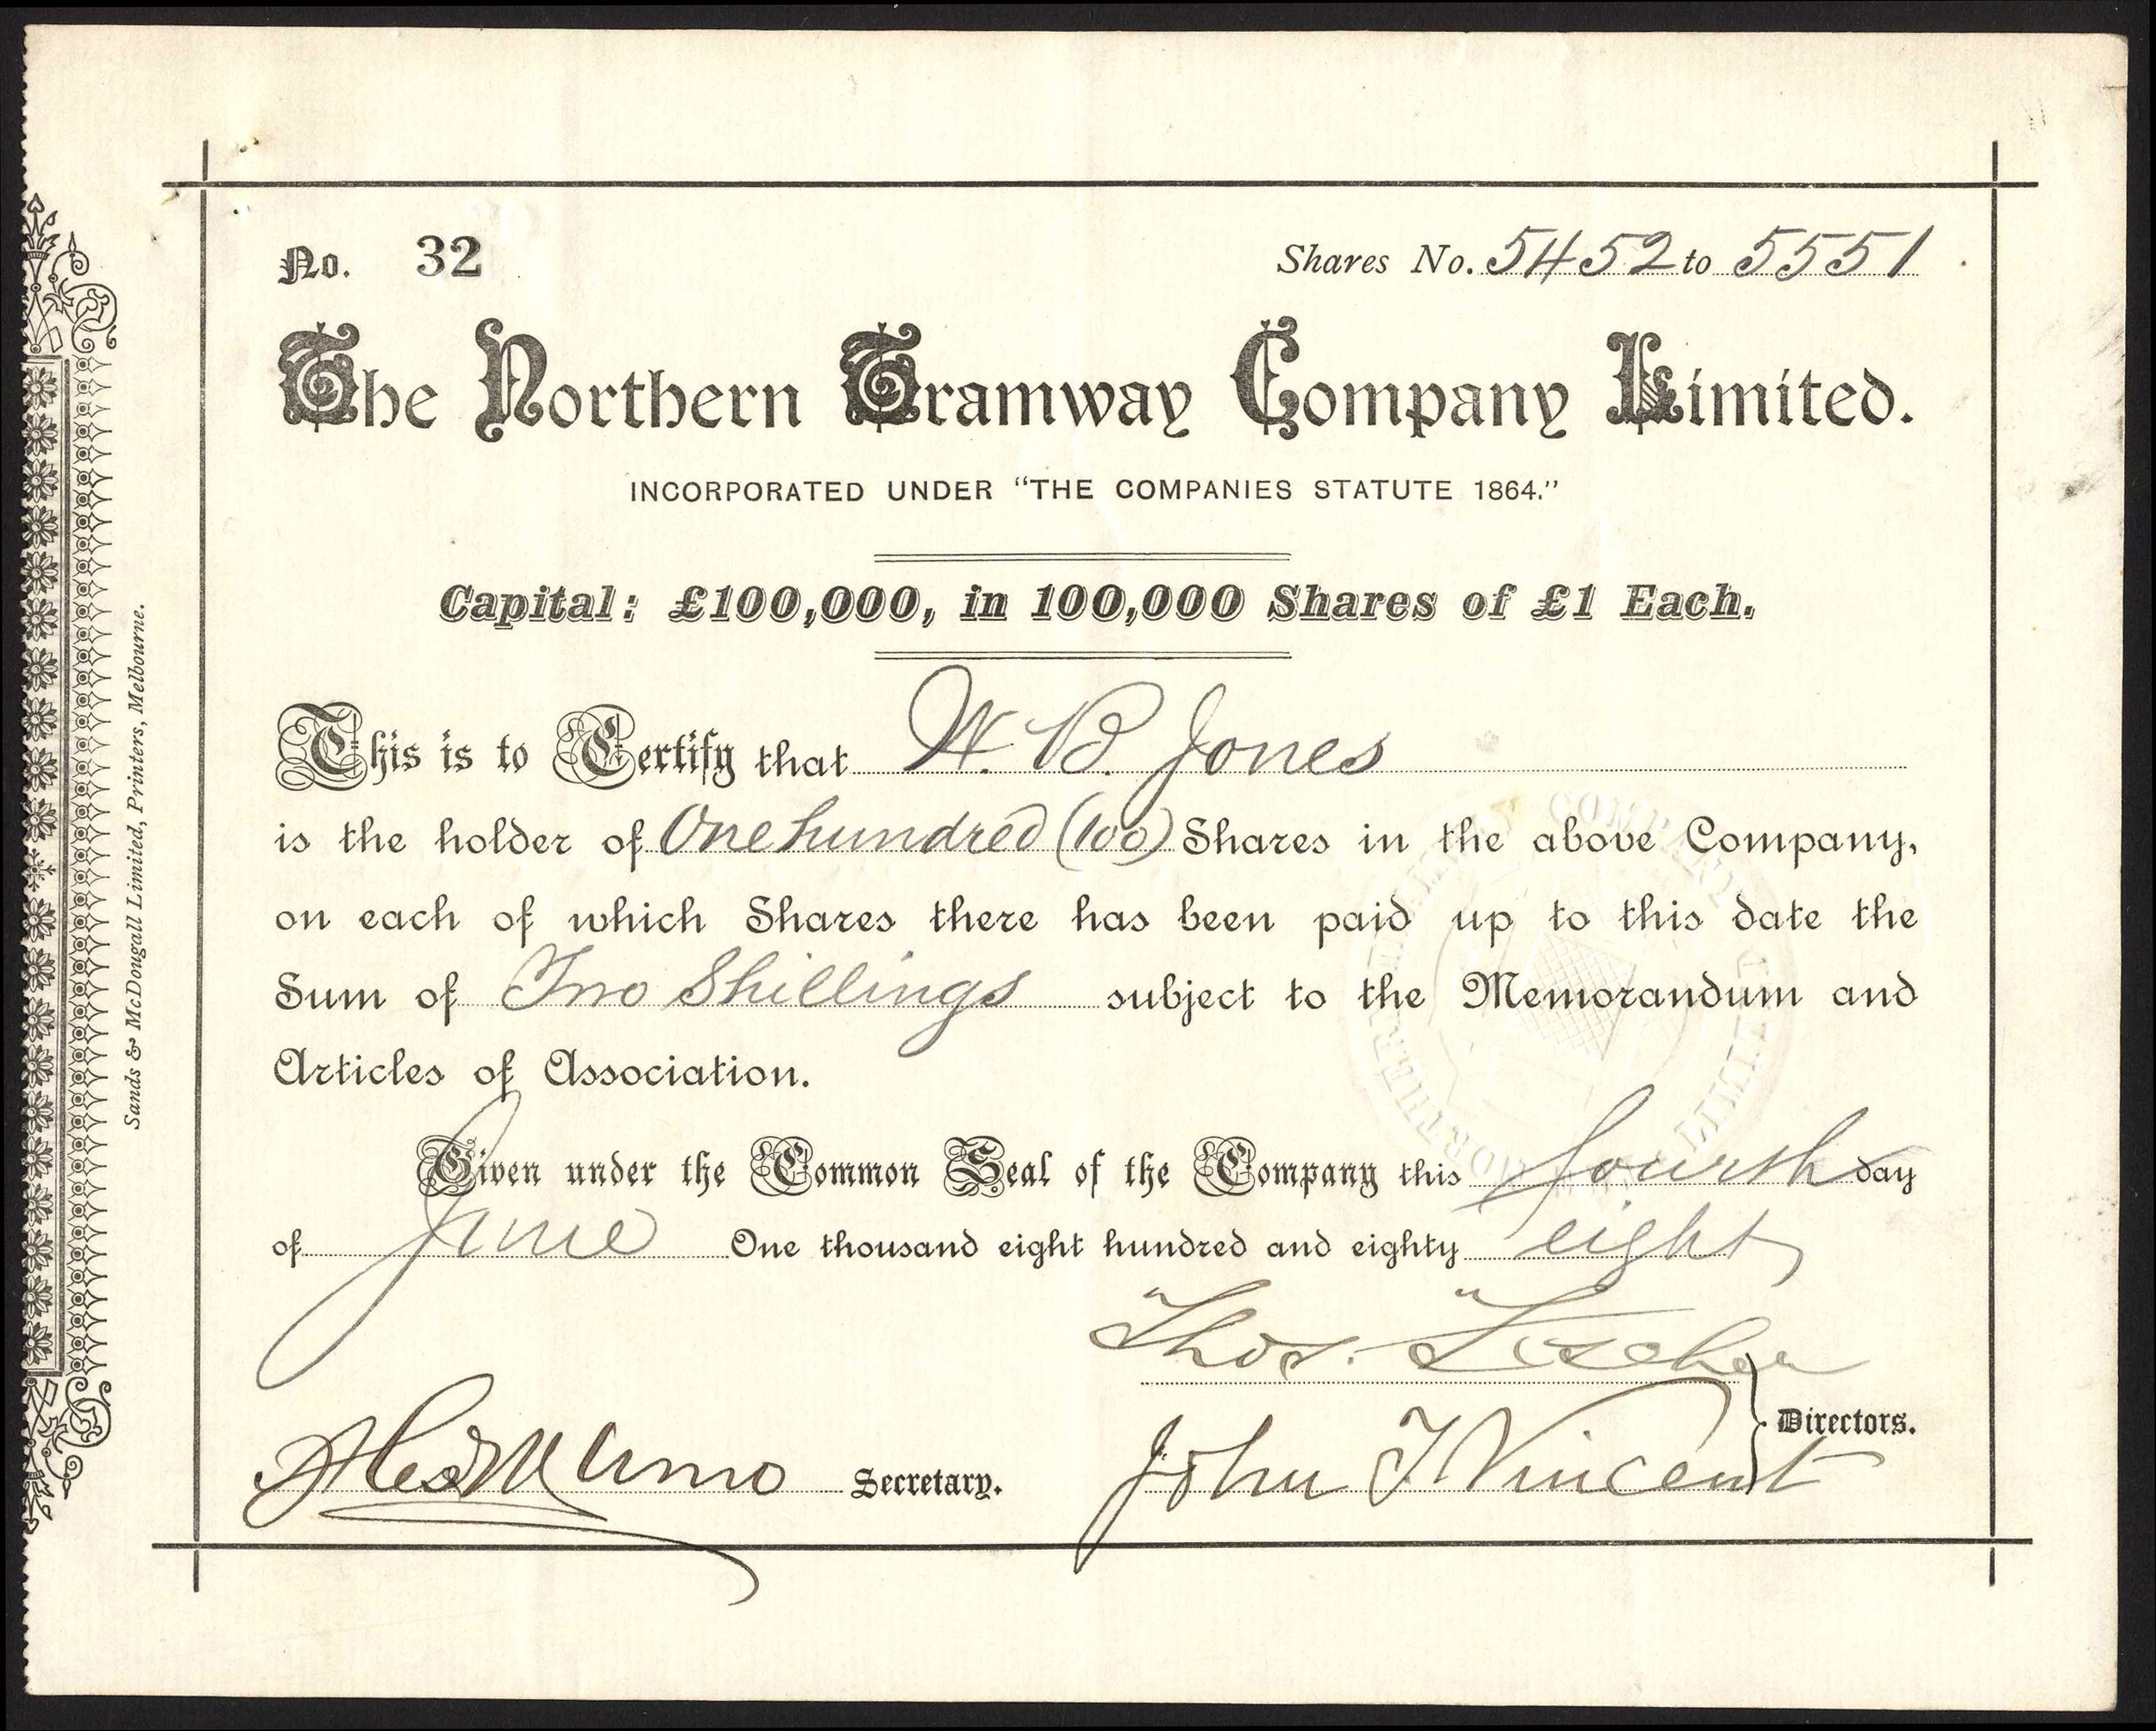 No. 32
Shares No. 5452 to 5551
The Northern Tramway Company Limited.
INCORPORATED UNDER "THE COMPANIES STATUTE 1864."
Capital: £100,000, in 100,000 Shares of £1 Each.
This is to Certify that W. B. Jones
is the holder of One hundred (100) Shares in the above Company,
on each of which Shares there has been paid up to this date the
Sum of Two Shillings subject to the Memorandum and
Articles of Association.
Given under the Common Seal of the Company this fourth day
of June One thousand eight hundred and eighty eight
Thos.
Directors.
Munro Secretary.
John T Vincent
Sands & McDougall Limited, Printers, Melbourne.